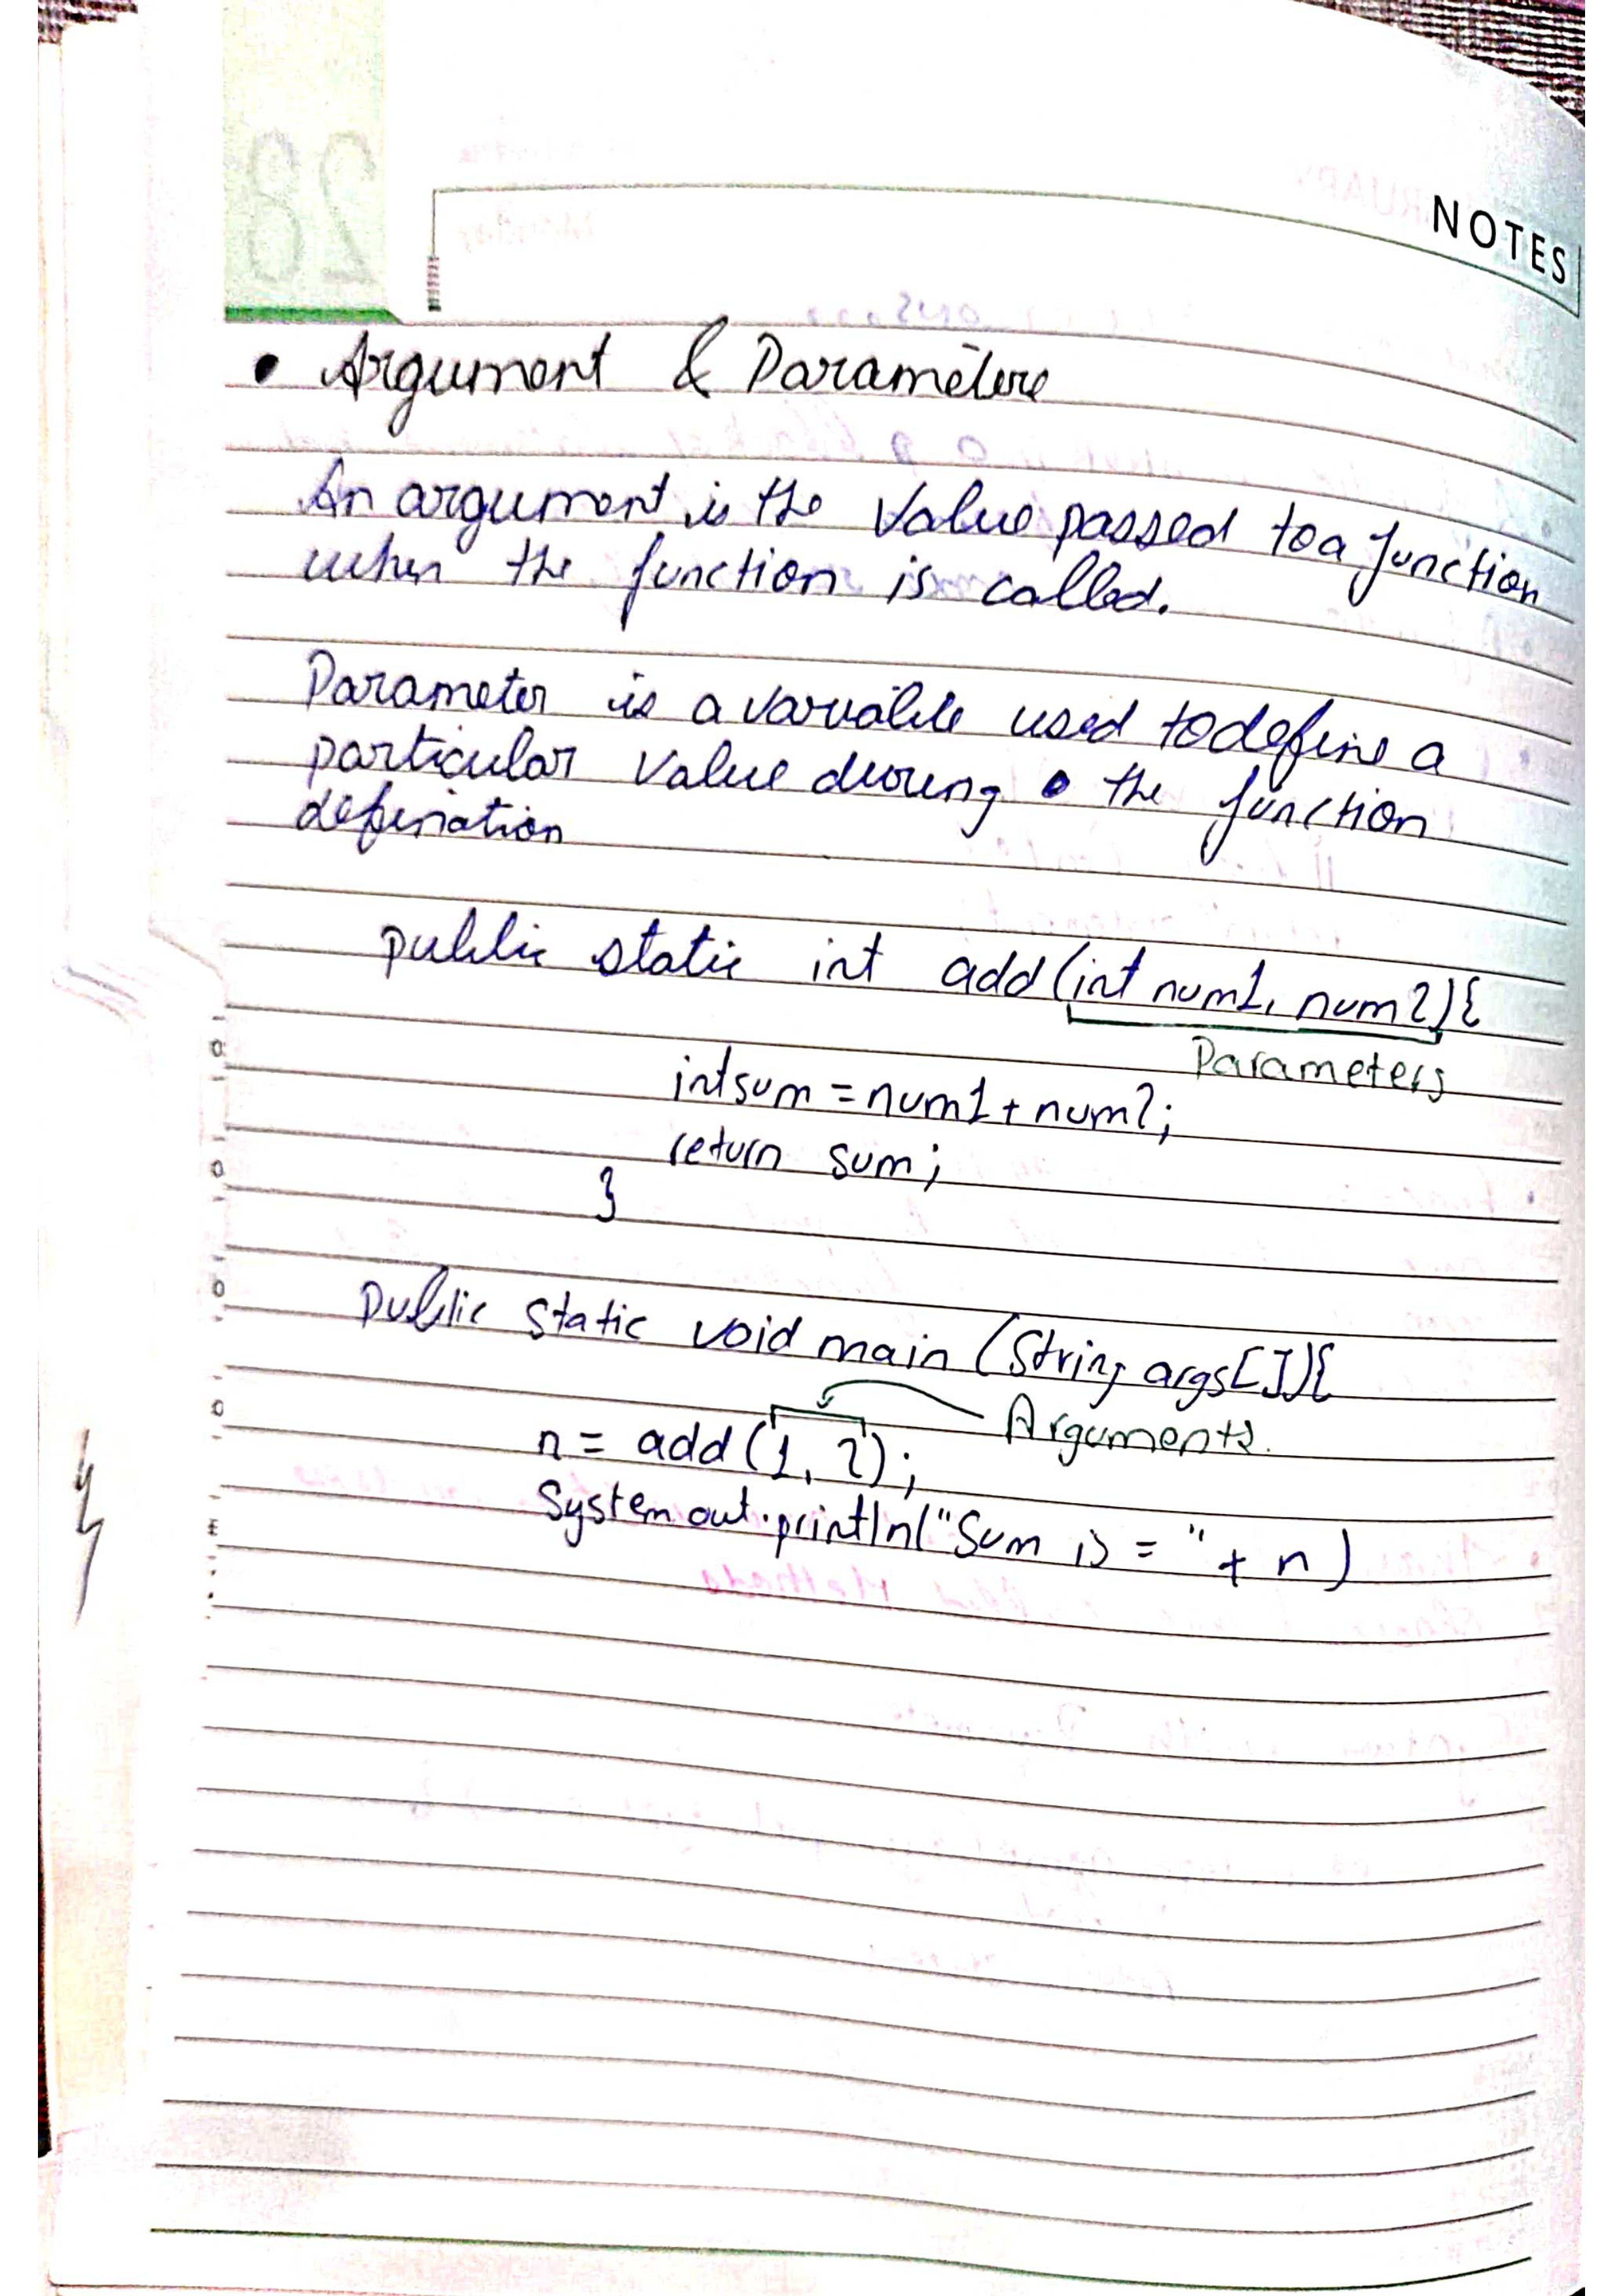 28
NOTES
• Argument & Parameters
An argument is the Value passed to a function
when the function is called.
Parameter is a variable used to define a
particular Value during the function
defination
public static int add (int num1, num2) {
Parameters
int sum = num1 + num2;
return sum;
}
public static void main (String args[]){
Arguments.
n = add (1, 2);
System out.println("Sum is = " + n )